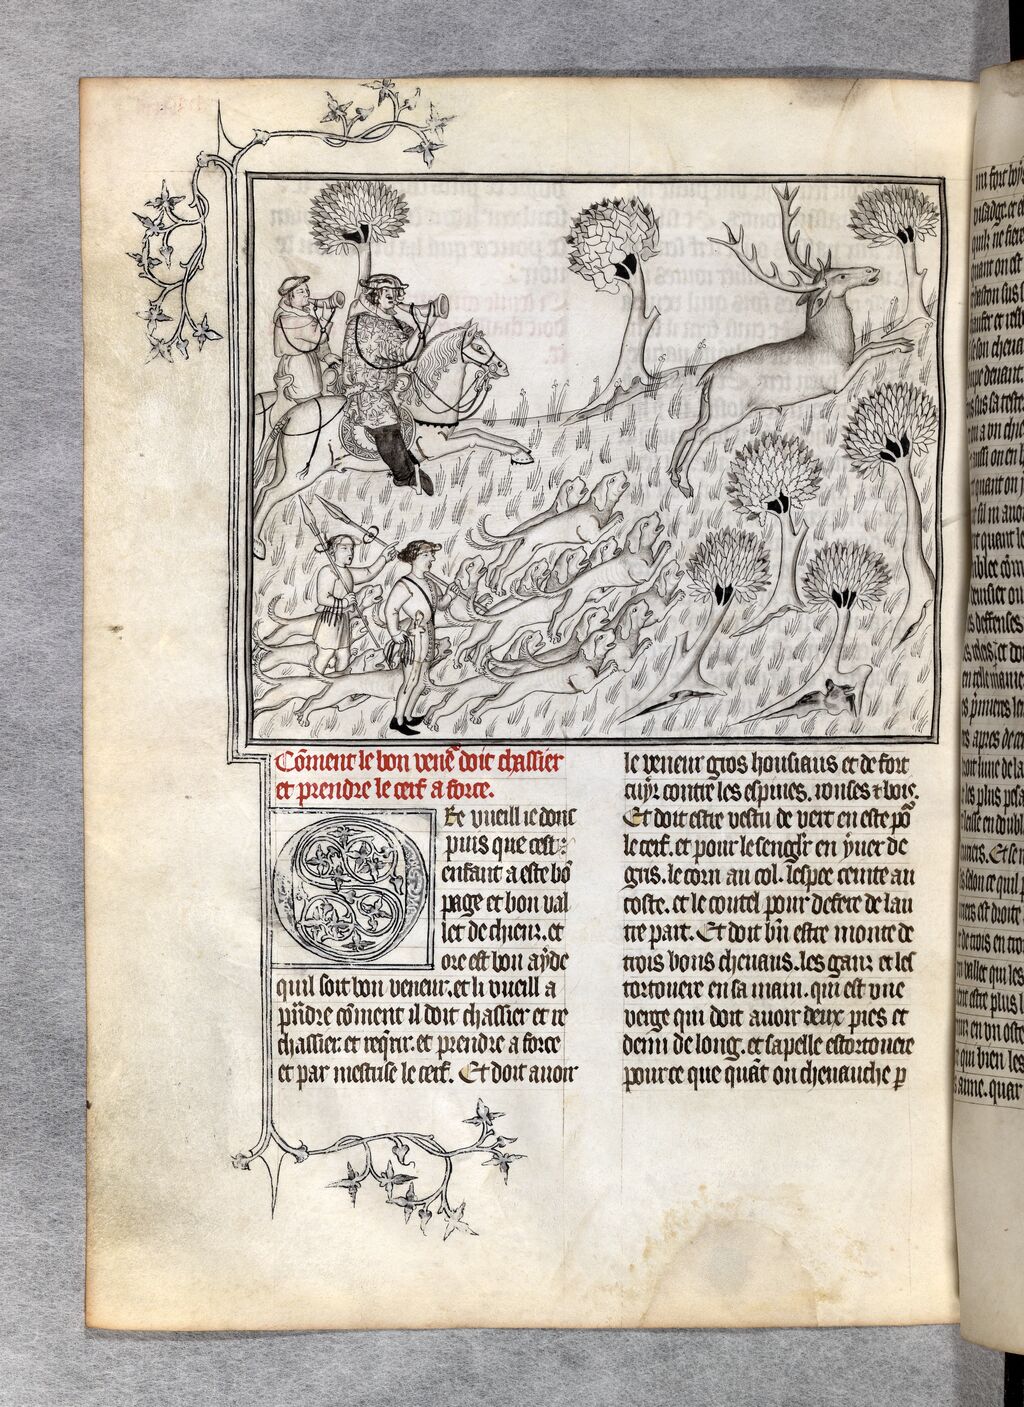 Cōment le bon venē doit chassier
et prendre le cerf a force.
Re vueill ie donc
puis que cest
enfant a este bō
page et bon val
let de chienz. et
ore est bon ayde
quil soit bon veneur. et li vueill a
prēdre cōment il doit chassier et re
chassier. et reqrir. et prendre a force
et par mestrise le cerf. Et doit auoir
le veneur gros housiaus et de fort
cuyr contre les espines. ronses et bois.
Et doit estre vestu de vert en este pō
le cerf. et pour le senglr en yuer de
gris. le corn au col. lespee ceinte au
coste. et le coutel pour defere de lau
tre part. Et doit bn̄ estre monte de
trois bons cheuaus. les ganz et les
tortouere en sa main. qui est vne
verge qui doit auoir deux pies et
demi de long. et sapelle estortouere
pour ce que quāt on cheuauche p